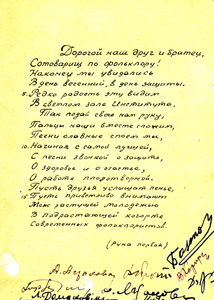 Дорогой наш друг и братец,
Сотоварищ по фольклору!
Наконец мы увидались
В день весенний, в день защиты.
5. Редко радость эту видим
В светлом зале Института.
Так подай свою нам руку,
Пальцы наши вместе сложим,
Песни славные споем мы,
10. Начиная с самой лучшей,
С песни звонкой о защите,
О здоровье и о счастье,
О работе плодотворной.
Пусть друзья услышат пенье,
15. Пусть приветливо внимают
Меж растущей молодежью
В подрастающей когорте
Современных фольклористов.
(Руна первая)